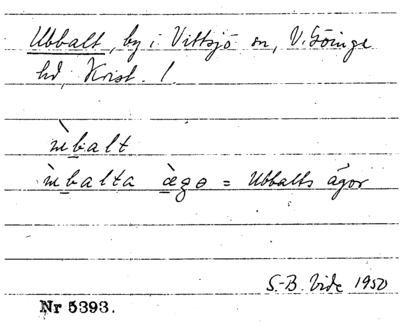 Ubbalt, by i Vittsjö sn, V. Göinge
hd, Krist. l.
ùbalt
ùbalta ægo = Ubbalts ägor
S.-B. Vide 1950
Nr 5393.